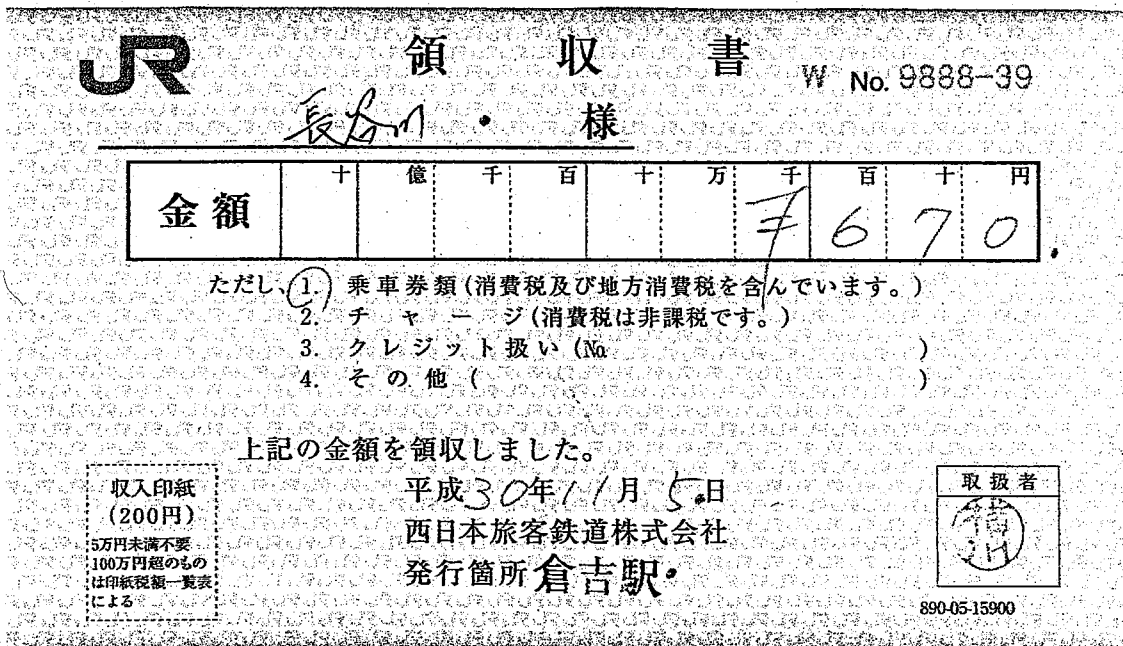 JR 領収書 W No. 9888-39
長谷川 様
十 億 千 百 十 万 千 百 十 円
金額 ¥ 6 7 0
ただし、1. 乗車券類(消費税及び地方消費税を含んでいます。)
2. チャージ(消費税は非課税です。)
3. クレジット扱い(No. )
4. その他( )
上記の金額を領収しました。
平成30年11月5日
西日本旅客鉄道株式会社
発行箇所 倉吉駅
収入印紙
(200円)
5万円未満不要
100万円超のもの
は印紙税額一覧表
による
取扱者
890-05-15900